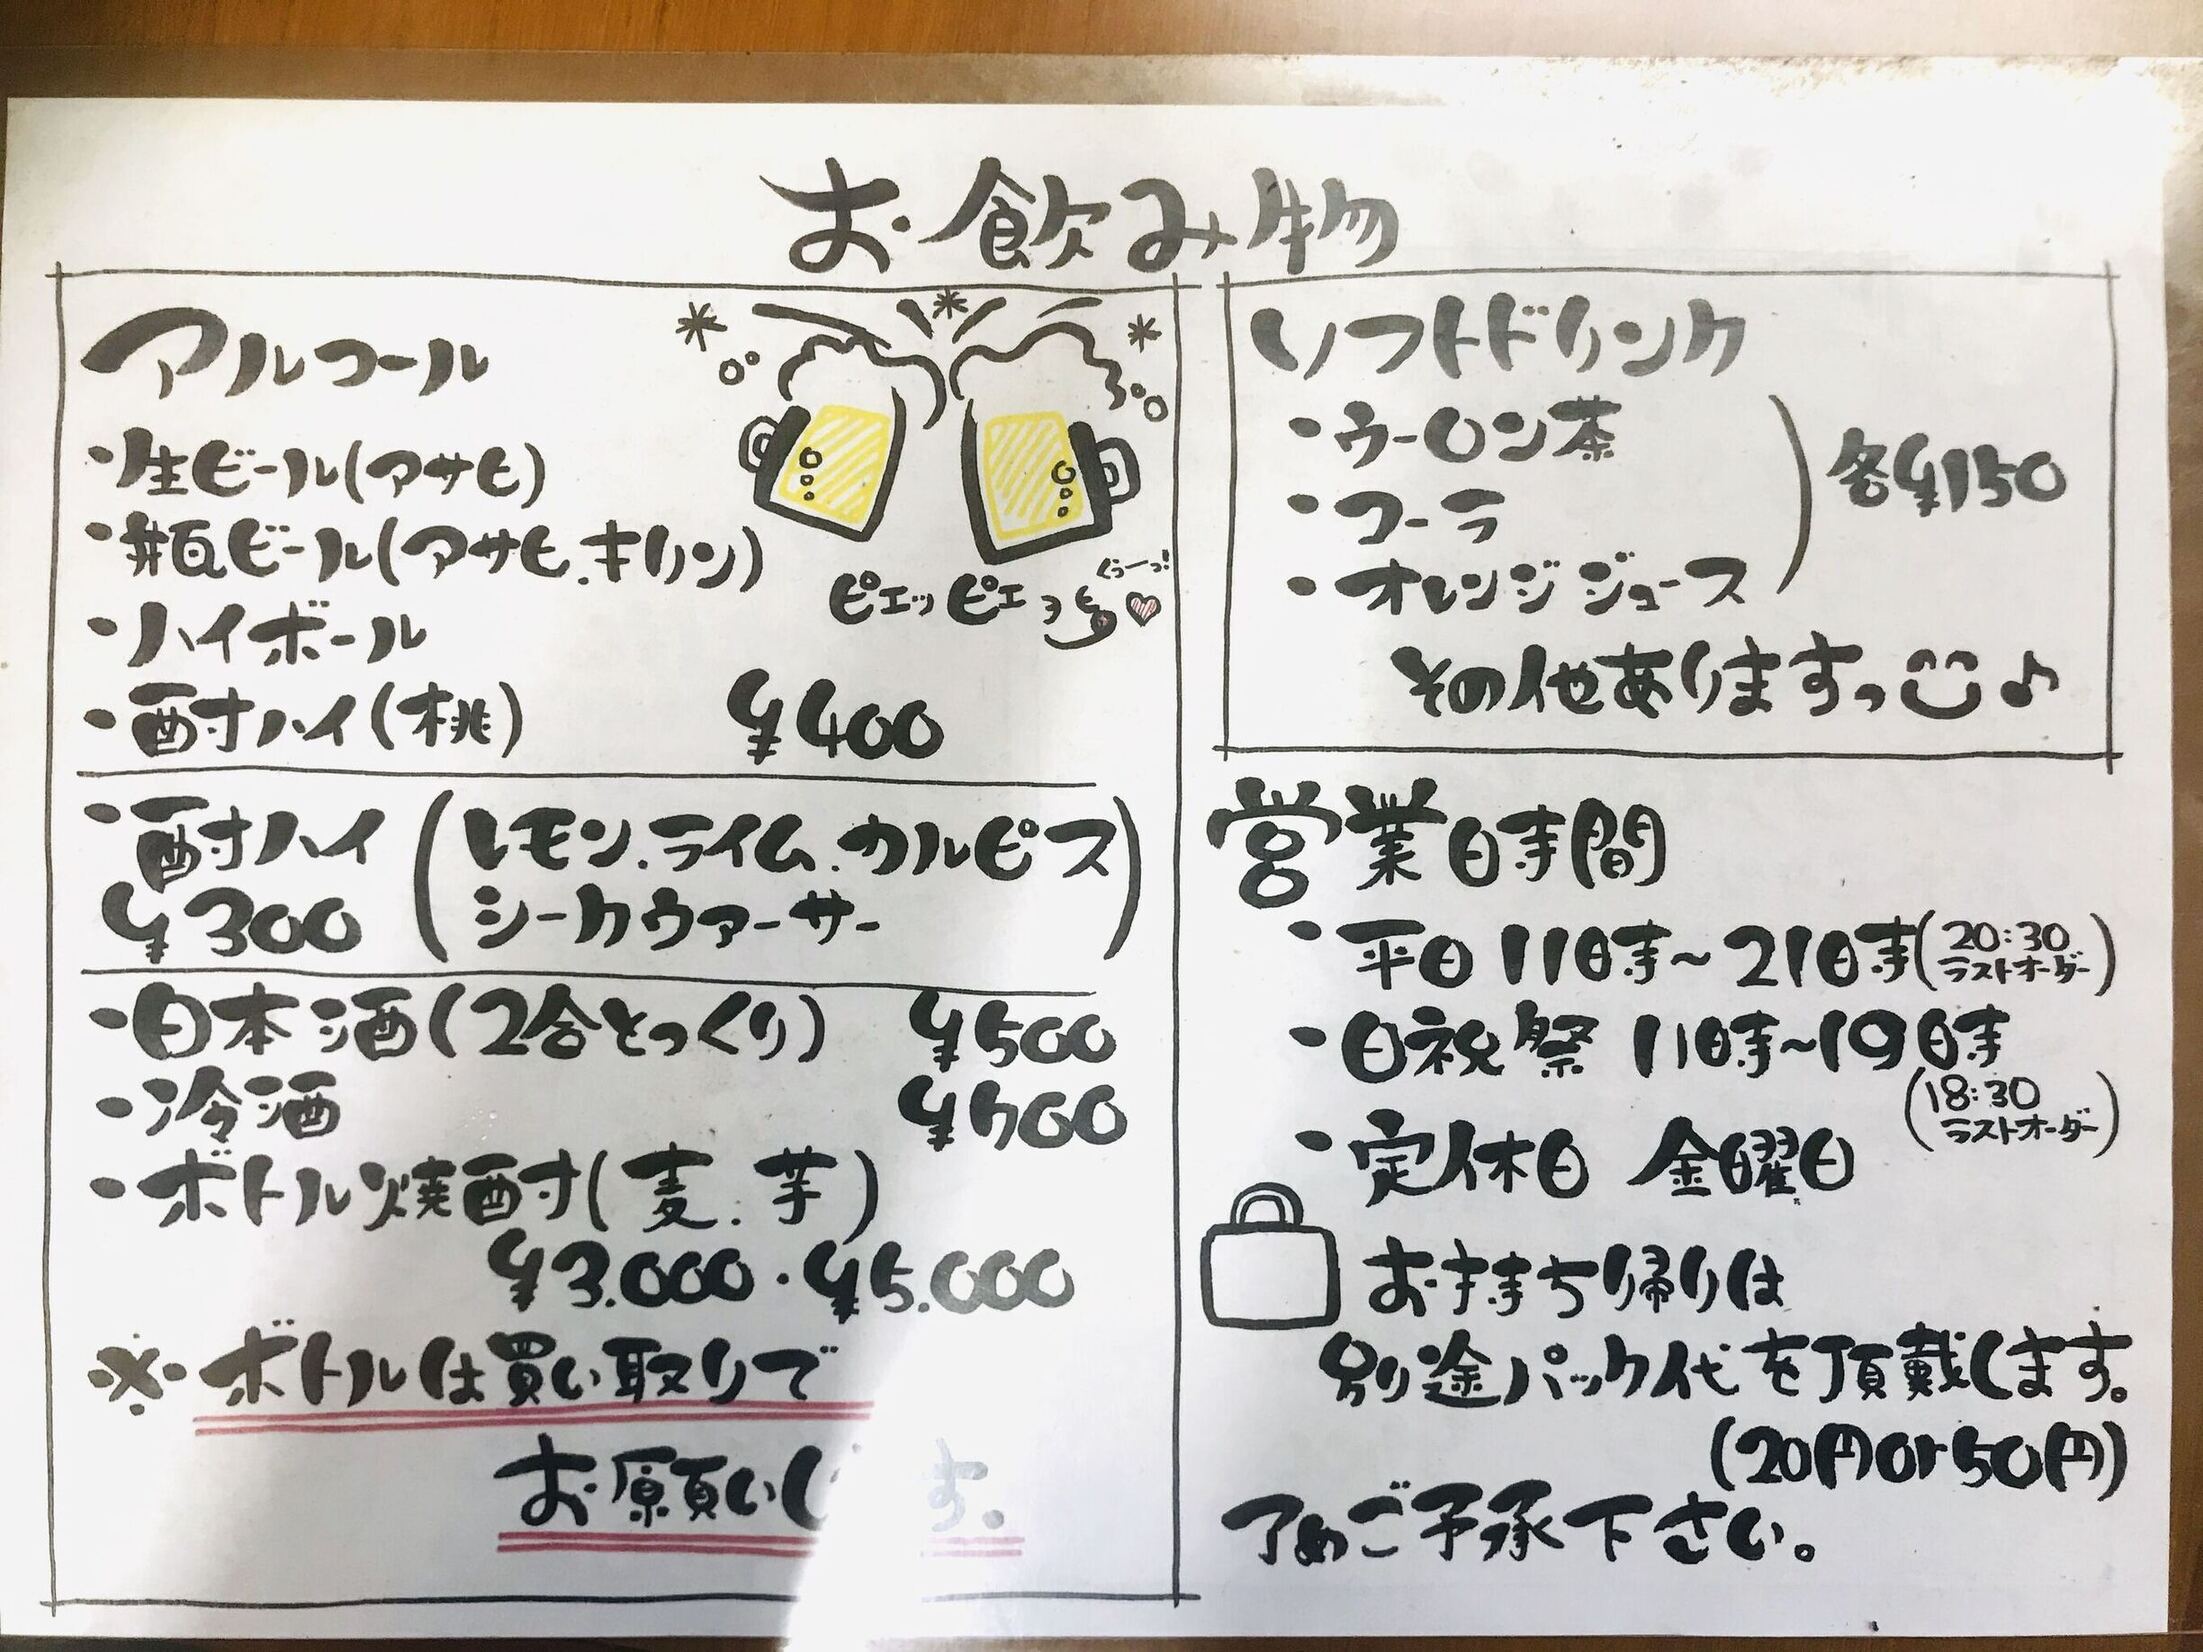 お飲み物
アルコール
・生ビール(アサヒ)
・瓶ビール(アサヒ.キリン)
・ハイボール
・酎ハイ(桃) ¥400
ピエッピエっ
ぐぅーっ!
・酎ハイ
¥300
(レモン.ライム.カルピス
シークヴァーサー)
・日本酒(2合とっくり) ¥500
・冷酒 ¥500
・ボトル焼酎(麦.芋)
¥3.000・¥5.000
※ボトルは買い取りで
お願いします。
ソフトドリンク
・ウーロン茶
・コーラ
・オレンジジュース
各¥150
その他ありますっ♪
営業時間
・平日 11時~21時(20:30
ラストオーダー)
・日祝祭 11時~19時
(18:30
ラストオーダー)
・定休日 金曜日
お持ち帰りは
別途パック代を頂戴します。
(20円or50円)
予めご了承下さい。